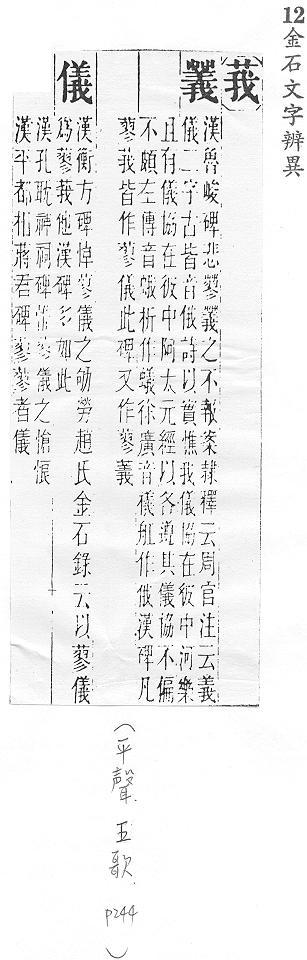 12金石文字辨異
莪
義
漢魯峻碑悲蓼義之不報案隸釋云周官注云義
儀二字古皆音俄詩以實惟我儀協在彼中河樂
且有儀協在彼中阿太元經以各遵其儀協不偏
不頗左傳音蛾析作蟻徐廣音檥船作俄漢碑凡
蓼莪皆作蓼儀此碑又作蓼義
儀
漢衡方碑悼蓼儀之劬勞趙氏金石錄云以蓼儀
爲蓼莪他漢碑多如此
漢孔耽神祠碑蓼儀之愴悢
漢平都相蔣君碑蓼蓼者儀
(平聲 五歌 p244)